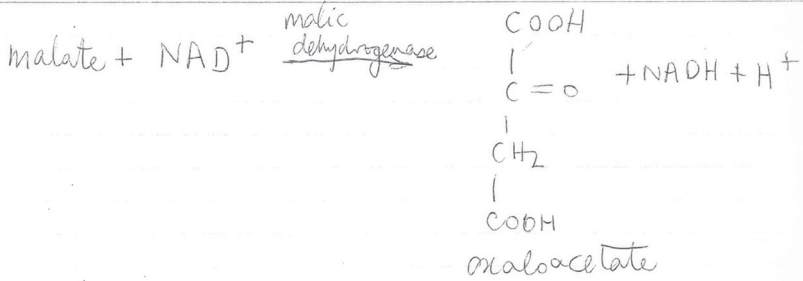 malate + NAD+ malic dehydrogenase COOH
|
C = O + NADH + H+
|
CH2
|
COOH
oxaloacetate